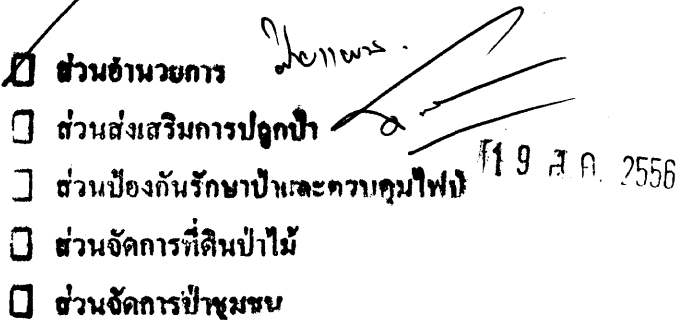 ส่วนอำนวยการ
ส่วนส่งเสริมการปลูกป่า
ส่วนป้องกันรักษาป่าและควบคุมไฟป่า
19 ส.ค. 2556
ส่วนจัดการที่ดินป่าไม้
ส่วนจัดการป่าชุมชน